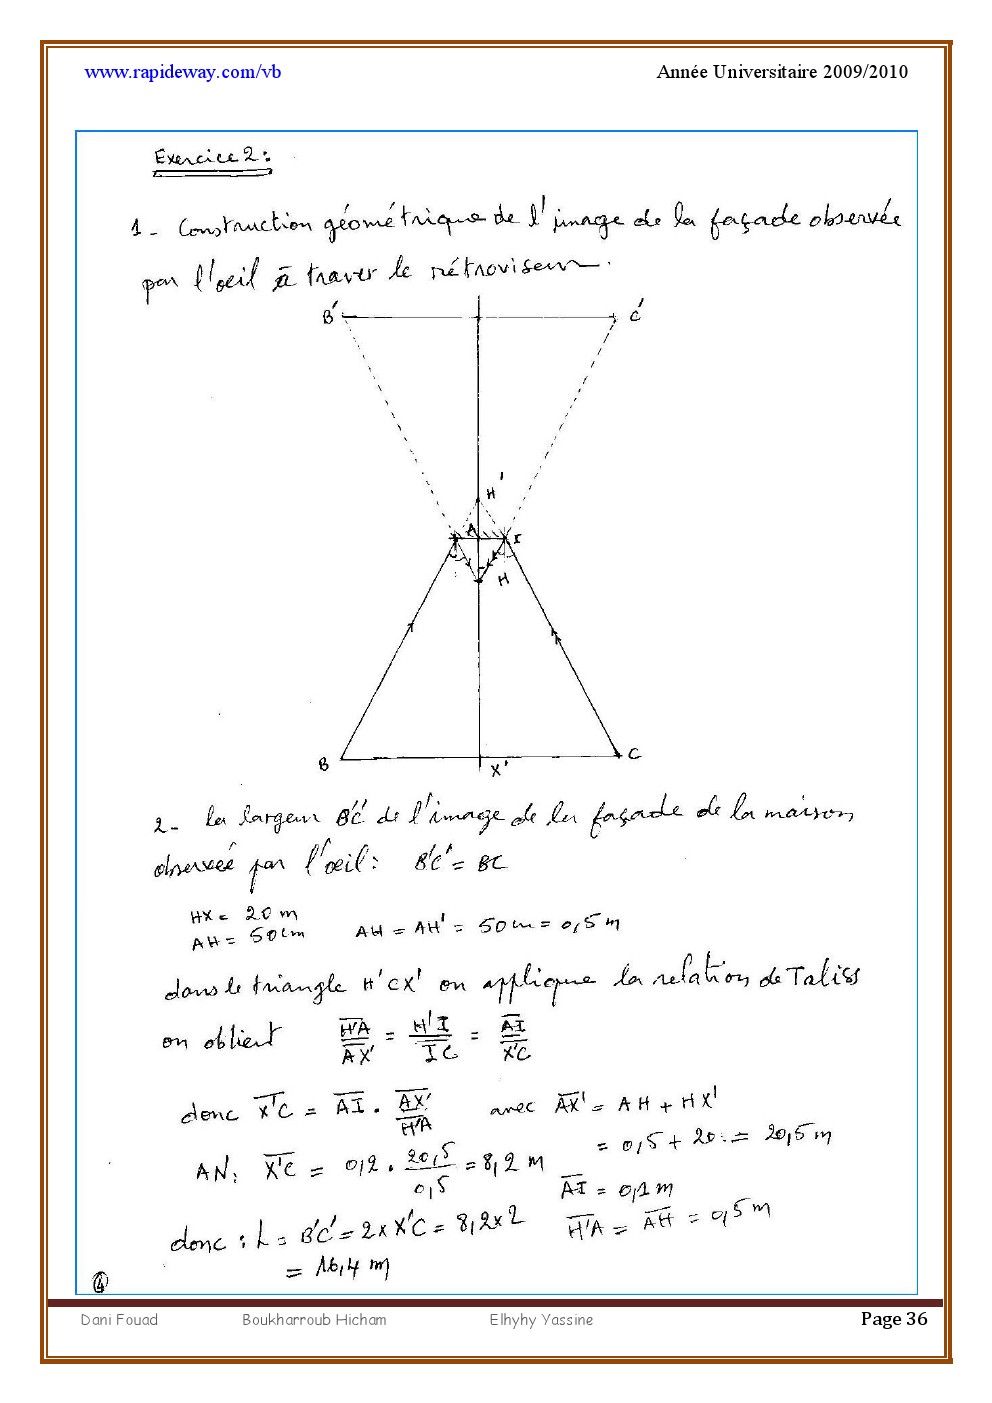 www.rapideway.com/vb Année Universitaire 2009/2010
Exercice 2:
1 - Construction géométrique de l'image de la façade observée
par l'oeil à traver le rétroviseur.
B' C'
H'
A I
H
B X' C
2 - la largeur B'C' de l'image de la façade de la maison
observée par l'oeil: B'C' = BC
HX = 20 m
AH = 50cm AH = AH' = 50 cm = 0,5 m
dans le triangle H'CX' on applique la relation de Taliss
on obtient H'A/AX' = H'I/IC = AI/X'C
donc X'C = AI . AX'/H'A avec AX' = AH + HX'
= 0,5 + 20 = 20,5 m
AN: X'C = 0,2 . 20,5/0,5 = 8,2 m
AI = 0,2 m
donc : L = B'C' = 2 x X'C = 8,2 x 2 H'A = AH = 0,5 m
= 16,4 m
4
Dani Fouad Boukharroub Hicham Elhyhy Yassine Page 36